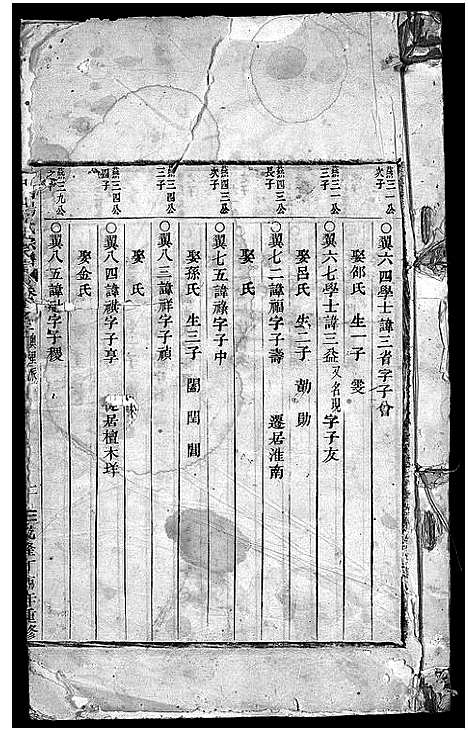 燕三一公
次子
○翼六四學士諱三省字子曾
娶邰氏 生一子 雯
燕三一公
三子
○翼六七學士諱三益又名現字子友
娶呂氏 生二子 勣 助
燕四三公
長子
○翼七二諱福字子壽 遷居淮南
娶 氏
燕四三公
次子
○翼七五諱祿字子中
娶孫氏 生三子 閶 閏 閭
燕三四公
三子
○翼八三諱祥字子禎
娶 氏
燕三四公
四子
○翼八四諱祺字子享 居檀木垟
娶金氏
燕三九公
之子
○翼八五諱 字子稷
隆丁 年重修